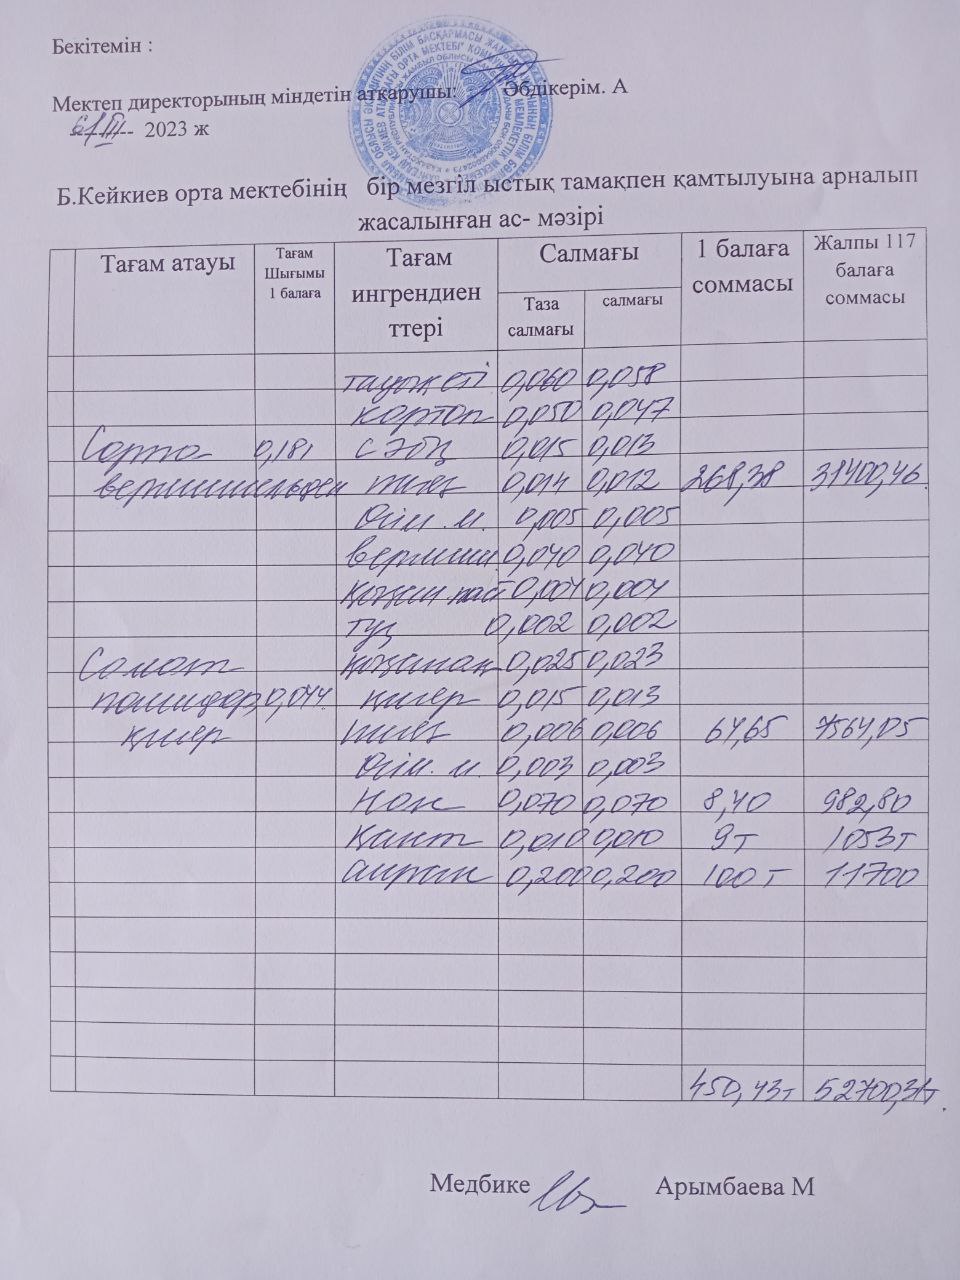 Бекітемін :
Мектеп директорының міндетін атқарушы: Әбдікерім. А
2023 ж
Б.Кейкиев орта мектебінің бір мезгіл ыстық тамақпен қамтылуына арналып
жасалынған ас- мәзірі
Тағам атауы Тағам Шығымы 1 балаға Тағам ингрендиен ттері Салмағы 1 балаға соммасы Жалпы 117 балаға соммасы
Таза салмағы салмағы
тауық еті 0,060 0,058
картоп 0,050 0,047
Сорпа 0,181 сәбіз 0,015 0,013
вермишельден пияз 0,014 0,012 268,38 31400,46
Өсім. м. 0,005 0,005
вермиш 0,040 0,040
қызан паст 0,004 0,004
тұз 0,002 0,002
Салат қызанақ 0,025 0,023
помидор, 0,044 қияр 0,015 0,013
қияр пияз 0,006 0,006 64,65 7564,05
Өсім. м. 0,003 0,003
Нан 0,070 0,070 8,40 982,80
Қант 0,010 0,010 9т 1053т
айран 0,200 0,200 100 т 11700
450,43т 52700,31т
Медбике Арымбаева М